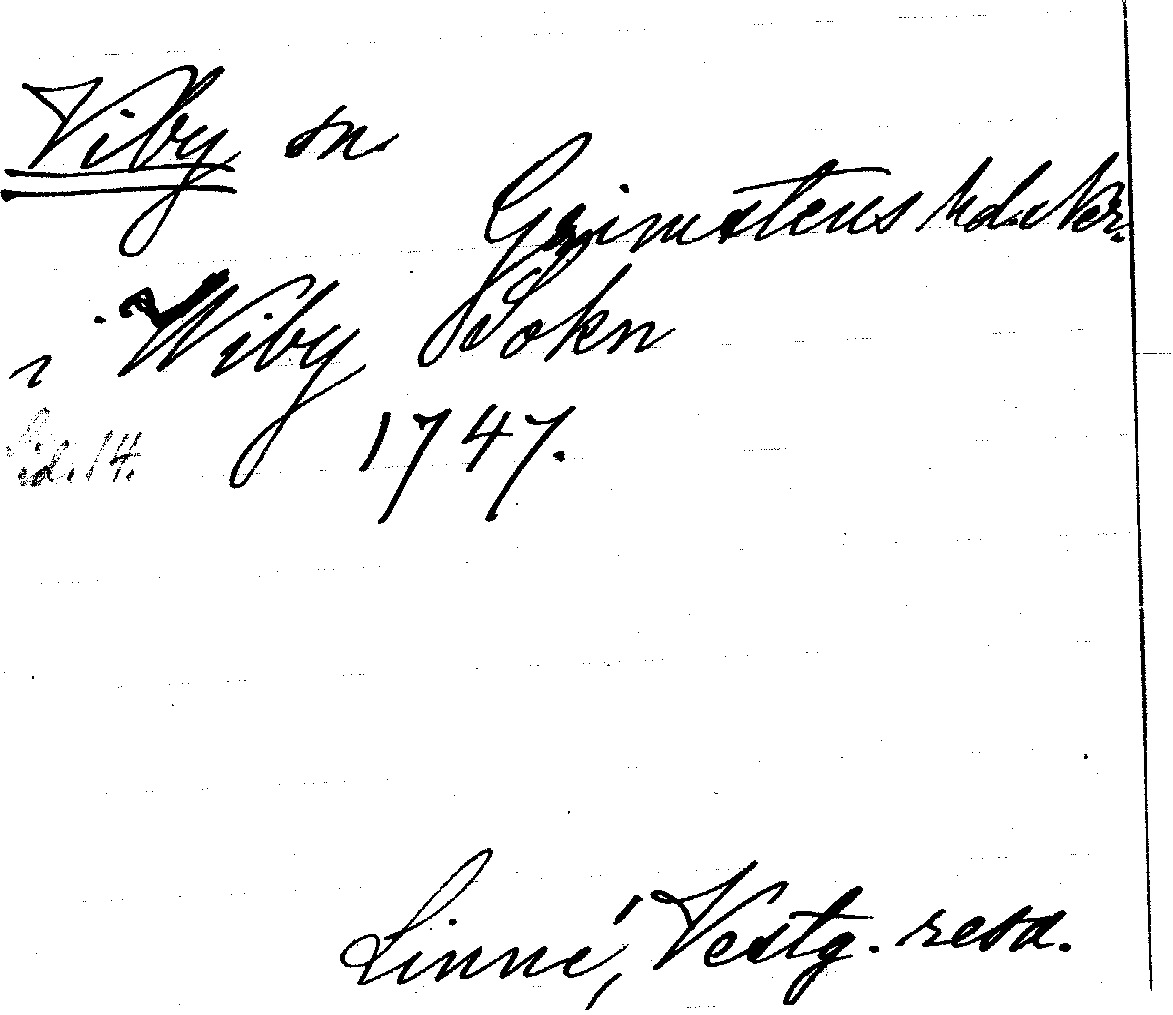 Viby sn.
Grimstens hd. Ner.
i Wiby Sokn
Sid. 14. 1747.
Linné, Vestg. resa.